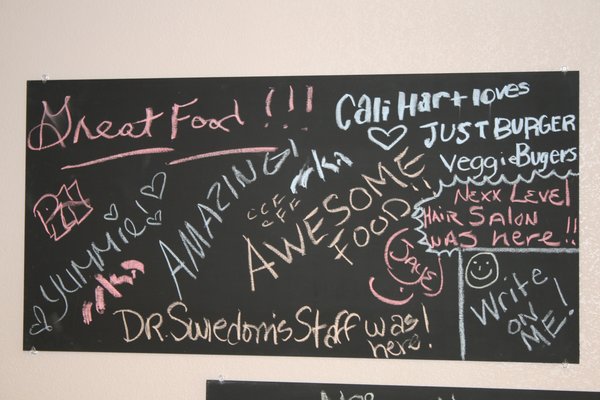 Great Food!!!
Cali Hart loves
JUST BURGER
Veggie Bugers
YUMMiE!
AMAZING!
AWESOME
FOOD!!
NeXX LeVeL
HAIR SALON
WAS here!!
JAYE
Write
ON
ME!
DR. Swiedom's Staff was
here!